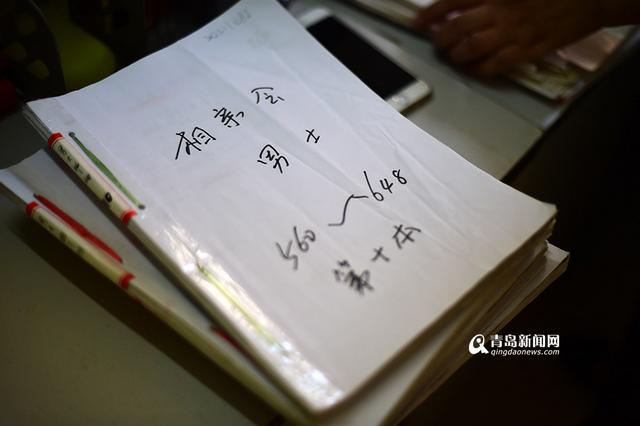 相亲会
男士
560~648
第十本
青岛新闻网
www.qingdaonews.com